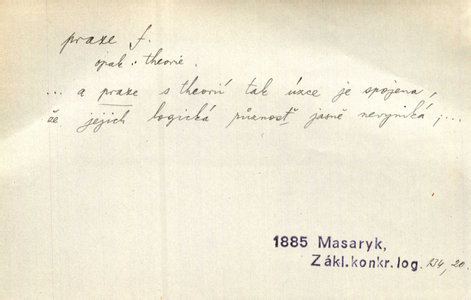 praxe f.
opak: theorie.
... a praxe s theorií tak úzce je spojena,
že jejich logická různosť jasně nevyniká; ...
1885 Masaryk,
Zákl.konkr.log. 134, 20.